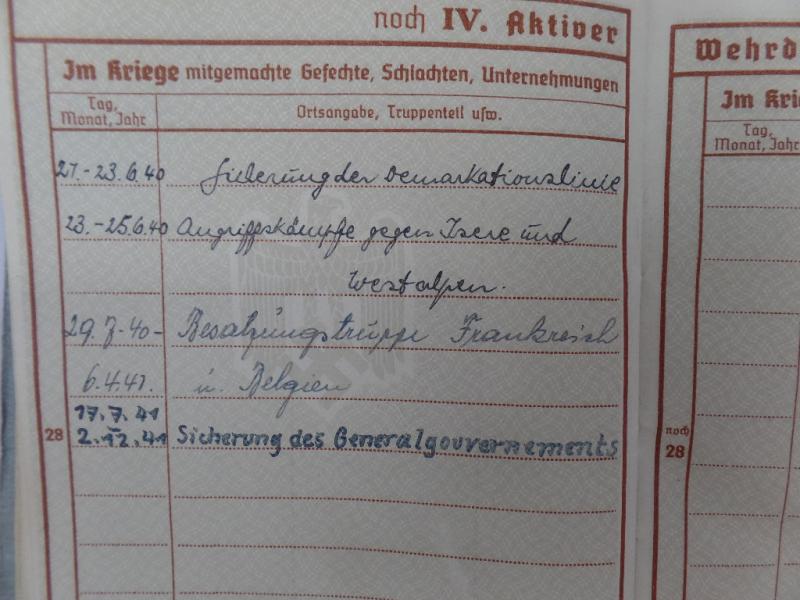 noch IV. Aktiver
Im Kriege mitgemachte Gefechte, Schlachten, Unternehmungen
Tag, Monat, Jahr
Ortsangabe, Truppenteil usw.
21.-23.6.40 Sicherung der Demarkationslinie
23.-25.6.40 Angriffskämpfe gegen Isere und
Westalpen.
29.7.40- Besatzungstruppe Frankreich
6.4.41. u. Belgien
17.7.41
28 2.12.41 Sicherung des Generalgouvernements
Wehrd
Im Kri
Tag,
Monat, Jahr
noch
28